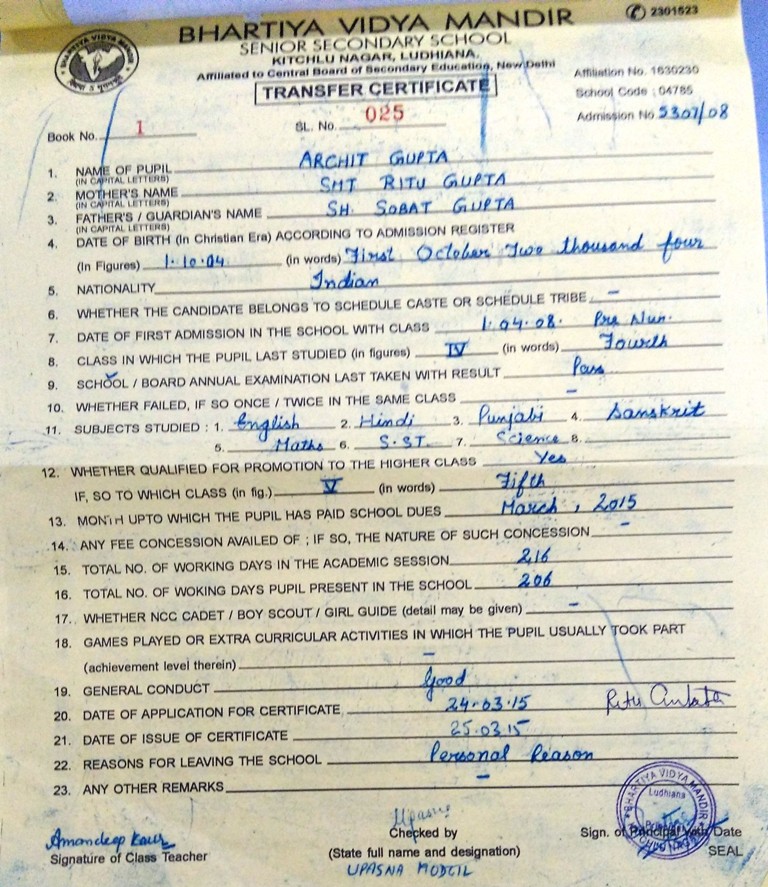 BHARTIYA VIDYA MANDIR
2301523
SENIOR SECONDARY SCHOOL
KITCHLU NAGAR, LUDHIANA.
Affiliated to Central Board of Secondary Education, New Delhi
Affiliation No. 1630230
TRANSFER CERTIFICATE
School Code : 04785
Book No. 1
SL. No. 025
Admission No 5307/08
1. NAME OF PUPIL ARCHIT GUPTA
(IN CAPITAL LETTERS)
2. MOTHER'S NAME SMT RITU GUPTA
(IN CAPITAL LETTERS)
3. FATHER'S / GUARDIAN'S NAME SH. SOBAT GUPTA
(IN CAPITAL LETTERS)
4. DATE OF BIRTH (in Christian Era) ACCORDING TO ADMISSION REGISTER
(in Figures) 1.10.04 (in words) First October Two thousand four
5. NATIONALITY Indian
6. WHETHER THE CANDIDATE BELONGS TO SCHEDULE CASTE OR SCHEDULE TRIBE –
7. DATE OF FIRST ADMISSION IN THE SCHOOL WITH CLASS 1.04.08. Pre Nur.
8. CLASS IN WHICH THE PUPIL LAST STUDIED (in figures) IV (in words) Fourth
9. SCHOOL / BOARD ANNUAL EXAMINATION LAST TAKEN WITH RESULT Pass
10. WHETHER FAILED, IF SO ONCE / TWICE IN THE SAME CLASS –
11. SUBJECTS STUDIED : 1. English 2. Hindi 3. Punjabi 4. Sanskrit
5. Maths 6. S.ST 7. Science 8.
12. WHETHER QUALIFIED FOR PROMOTION TO THE HIGHER CLASS Yes
IF, SO TO WHICH CLASS (in fig.) V (in words) Fifth
13. MONTH UPTO WHICH THE PUPIL HAS PAID SCHOOL DUES March, 2015
14. ANY FEE CONCESSION AVAILED OF ; IF SO, THE NATURE OF SUCH CONCESSION –
15. TOTAL NO. OF WORKING DAYS IN THE ACADEMIC SESSION 216
16. TOTAL NO. OF WOKING DAYS PUPIL PRESENT IN THE SCHOOL 206
17. WHETHER NCC CADET / BOY SCOUT / GIRL GUIDE (detail may be given) –
18. GAMES PLAYED OR EXTRA CURRICULAR ACTIVITIES IN WHICH THE PUPIL USUALLY TOOK PART
(achievement level therein) –
19. GENERAL CONDUCT Good
20. DATE OF APPLICATION FOR CERTIFICATE 24.03.15 Ritu
21. DATE OF ISSUE OF CERTIFICATE 25.03.15
22. REASONS FOR LEAVING THE SCHOOL Personal Reason
23. ANY OTHER REMARKS –
BHARTIYA VIDYA MANDIR
Ludhiana
Amandeep Kaur
Upasna
Signature of Class Teacher
Checked by
Sign. of Principal with Date
(State full name and designation)
SEAL
UPASNA MODGIL